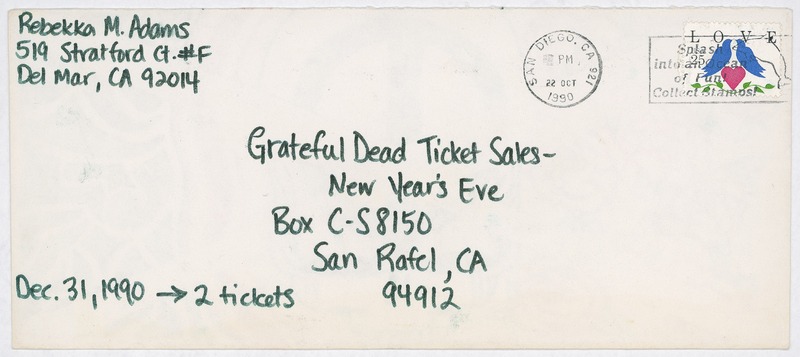 Rebekka M. Adams
519 Stratford Ct. #F
Del Mar, CA 92014
SAN DIEGO, CA 921
PM
22 OCT
1990
LOVE
25
Splash
into an Ocean
of Fun!
Collect Stamps!
Grateful Dead Ticket Sales-
New Year's Eve
Box C-S8150
San Rafel, CA
94912
Dec. 31, 1990 → 2 tickets